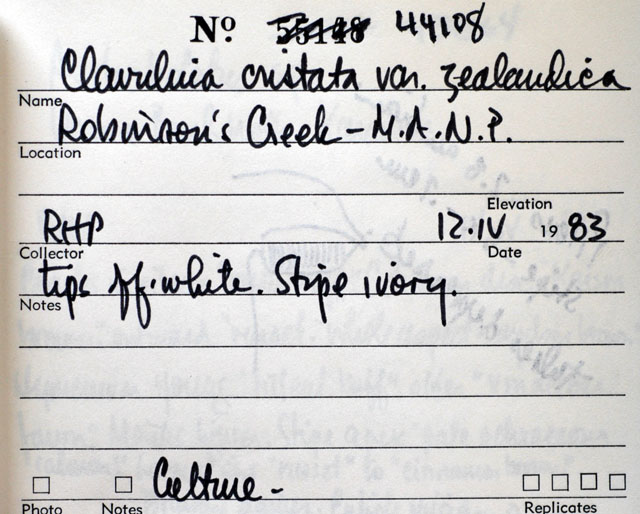 Nº 55148 44108
Clavulina cristata var. zealandica
Name
Robinson's Creek - M.A.N.P.
Location
Elevation
RHP 12.IV 19 83
Collector Date
tips off-white. Stipe ivory.
Notes
Culture -
Photo Notes Replicates